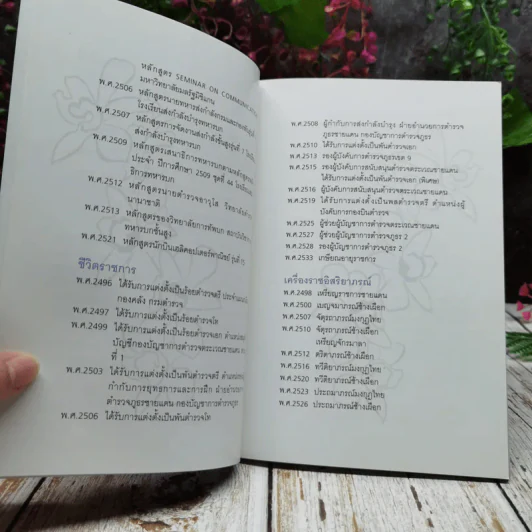 หลักสูตร SEMINAR ON COMMUNICATION
มหาวิทยาลัยมลรัฐมิชิแกน
พ.ศ.2506 หลักสูตรนายทหารส่งกำลัง
โรงเรียนส่งกำลังบำรุงทหารบก
พ.ศ.2507 หลักสูตรการจัดงานส่งกำลังขั้นสูง
ส่งกำลังบำรุงทหารบก
พ.ศ.2509 หลักสูตรเสนาธิการทหารบกตามหลักสูตร
ประจำ ปีการศึกษา 2509 ชุดที่ 44
ธิการทหารบก
พ.ศ.2512 หลักสูตรนายตำรวจอาวุโส
นานาชาติ
พ.ศ.2513 หลักสูตรของวิทยาลัยการทัพบก
ทหารบกชั้นสูง
พ.ศ.2521 หลักสูตรนักบินเฮลิคอปเตอร์พาณิชย์
ชีวิตราชการ
พ.ศ.2496 ได้รับการแต่งตั้งเป็นร้อยตำรวจตรี
กองคลัง กรมตำรวจ
พ.ศ.2497 ได้รับการแต่งตั้งเป็นร้อยตำรวจโท
พ.ศ.2499 ได้รับการแต่งตั้งเป็นร้อยตำรวจเอก
บัญชีกองบัญชาการตำรวจตระเวนชายแดน
ที่ 1
พ.ศ.2503 ได้รับการแต่งตั้งเป็นพันตำรวจตรี
กำกับการยุทธการและการฝึก
ตำรวจภูธรชายแดน กองบัญชาการตำรวจภูธร
พ.ศ.2506 ได้รับการแต่งตั้งเป็นพันตำรวจโท
พ.ศ.2508 ผู้กำกับการส่งกำลังบำรุง ฝ่ายอำนวยการตำรวจ
ภูธรชายแดน กองบัญชาการตำรวจภูธร
พ.ศ.2510 ได้รับการแต่งตั้งเป็นพันตำรวจเอก
พ.ศ.2513 รองผู้บังคับการตำรวจภูธรเขต 9
พ.ศ.2515 รองผู้บังคับการสนับสนุนตำรวจตระเวนชายแดน
ได้รับการแต่งตั้งเป็นพันตำรวจเอก (พิเศษ)
พ.ศ.2516 ผู้บังคับการสนับสนุนตำรวจตระเวนชายแดน
พ.ศ.2519 ได้รับการแต่งตั้งเป็นพลตำรวจตรี ตำแหน่งผู้
บังคับการกองบินตำรวจ
พ.ศ.2525 ผู้ช่วยผู้บัญชาการตำรวจตระเวนชายแดน
พ.ศ.2527 ผู้ช่วยผู้บัญชาการตำรวจภูธร 2
พ.ศ.2528 รองผู้บัญชาการตำรวจภูธร 2
พ.ศ.2533 เกษียณอายุราชการ
เครื่องราชอิสริยาภรณ์
พ.ศ.2498 เหรียญราชการชายแดน
พ.ศ.2500 เบญจมาภรณ์ช้างเผือก
พ.ศ.2507 จัตุรถาภรณ์มงกุฎไทย
พ.ศ.2510 จัตุรถาภรณ์ช้างเผือก
เหรียญจักรมาลา
พ.ศ.2512 ตริตาภรณ์ช้างเผือก
พ.ศ.2516 ทวีติยาภรณ์มงกุฎไทย
พ.ศ.2520 ทวีติยาภรณ์ช้างเผือก
พ.ศ.2523 ประถมาภรณ์มงกุฎไทย
พ.ศ.2526 ประถมาภรณ์ช้างเผือก